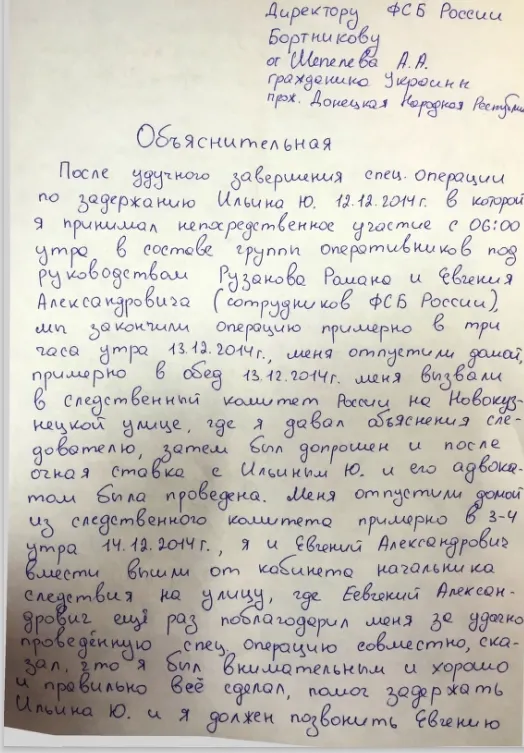 Директору ФСБ России
Бортникову
от Шепелева А.А.
гражданина Украины
прож. Донецкая Народная Республи
Объяснительная
После удучного завершения спец. операции
по задержанию Ильина Ю. 12.12.2014г. в которой
я принимал непосредственное участие с 06:00
утра в составе группы оперативников под
руководством Рузанова Романа и Евгения
Александровича (сотрудников ФСБ России),
мы закончили операцию примерно в три
часа утра 13.12.2014г., меня отпустили домой,
примерно в обед 13.12.2014г. меня вызвали
в следственный комитет России на Новокуз-
нецкой улице, где я давал объяснения сле-
дователю, затем был допрошен и после
очная ставка с Ильиным Ю. и его адвока-
том была проведена. Меня отпустили домой
из следственного комитета примерно в 3-4
утра 14.12.2014г., я и Евгений Александрович
вмести вышли от кабинета начальника
следствия на улицу, где Еевгений Алексан-
дрович ещё раз поблагодарил меня за удачно
проведённую спец. операцию совместно, ска-
зал, что я был внимательным и хорошо
и правильно всё сделал, помог задержать
Ильина Ю. и я должен позвонить Евгению